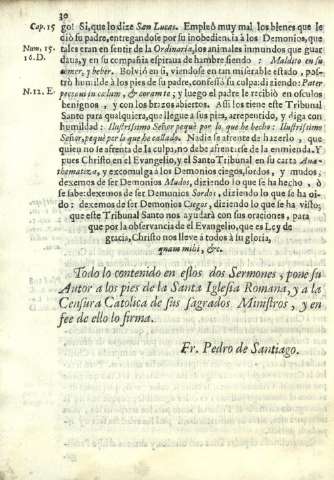 30
Cap. 15 go! Si, que lo dize San Lucas. Empleó muy mal los bienes que le
dió su padre, entregandose por su inobediencia à los Demonios, que
Num. 15. tales eran en sentir de la Ordinaria, los animales inmundos que guar
16. D. daua, y en su compañia espiraua de hambre siendo: Maldito en su
comer, y beber. Bolviò en si, viendose en tan miserable estado, pos-
trò humilde à los pies de su padre, confessò su culpa: diziendo: Pater
N. 12. E. peccaui in cœlum, & coram te; y luego el padre le recibiò en osculos
benignos, y con los brazos abiertos. Assi los tiene este Tribunal
Santo para qualquiera, que llegue à sus pies, arrepentido, y diga con
humildad: Ilustrissimo Señor pequè por lo que he hecho: Ilustrissimo
Señor, pequè por lo que he callado. Nadie se afrente de hazerlo, que
quien no se afrenta de la culpa, no debe afrentarse de la enmienda. Y
pues Christo en el Evangelio, y el Santo Tribunal en su carta Ana-
thematiza, y excomulga à los Demonios ciegos, sordos, y mudos;
dexemos de ser Demonios Mudos, diziendo lo que se ha hecho, ò
se sabe: dexemos de ser Demonios Sordos, diziendo lo que se ha oi-
do: dexemos de ser Demonios Ciegos, diziendo lo que se ha visto;
que este Tribunal Santo nos ayudarà con sus oraciones, para
que por la observancia de el Evangelio, que es Ley de
gracia, Christo nos lleve à todos à su gloria,
quam mihi, &c.
Todo lo contenido en estos dos Sermones, pone su
Autor à los pies de la Santa Iglesia Romana, y à la
Censura Catolica de sus sagrados Ministros, y en
fee de ello lo firma.
Fr. Pedro de Santiago.